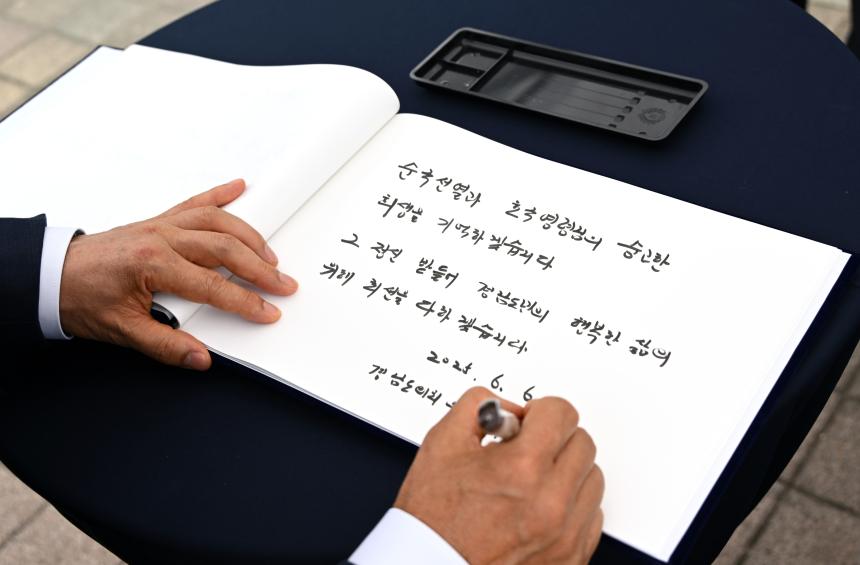 순국선열과 호국영령님의 숭고한
희생을 기억하겠습니다
그 정신 받들어 경남도민의 행복한 삶의
위해 최선을 다하겠습니다.
2025. 6. 6
경남도의회